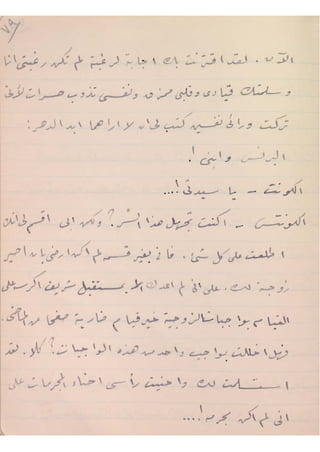 ٧٩
الآن. لقد اقترنت بك اجابة لرغبة لم تكن رغبتي انا
وسلمتك قيادي وقلبي ممزق ونفسي تذوب حسرات لأني
تركت ورائي نفسين كتب لي ان لا اراهما ابد الدهر:
البرنس وابني!
الكونت - يا سيدتي!...
الكونتس - اكنت تجهل هذا السر؟ ولكن ابي اقسم لي انك
اطلعت على كل شيء. فاني بغير قسمه لم اكن ارضى بان اصير
زوجة لك. على اني لم اعدك الا بمستقبل شريف اكرسه على
القيام بواجبات الزوجية خير قيام ضاربة صفحا عن الماضي.
فهل اخللت بواجب واحد من هذه الواجبات؟ كلا. لقد
استسلمت لك واحنيت رأسي احناء المجرمات على
اني لم اكن مجرمه!...